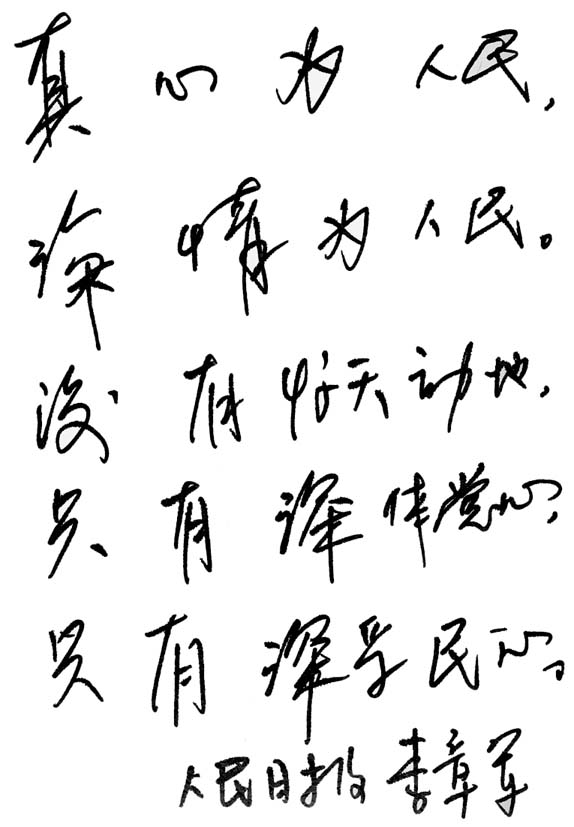 真心为人民,
深情为人民。
没有惊天动地,
只有深体党心,
只有深孚民心。
人民日报 李章军